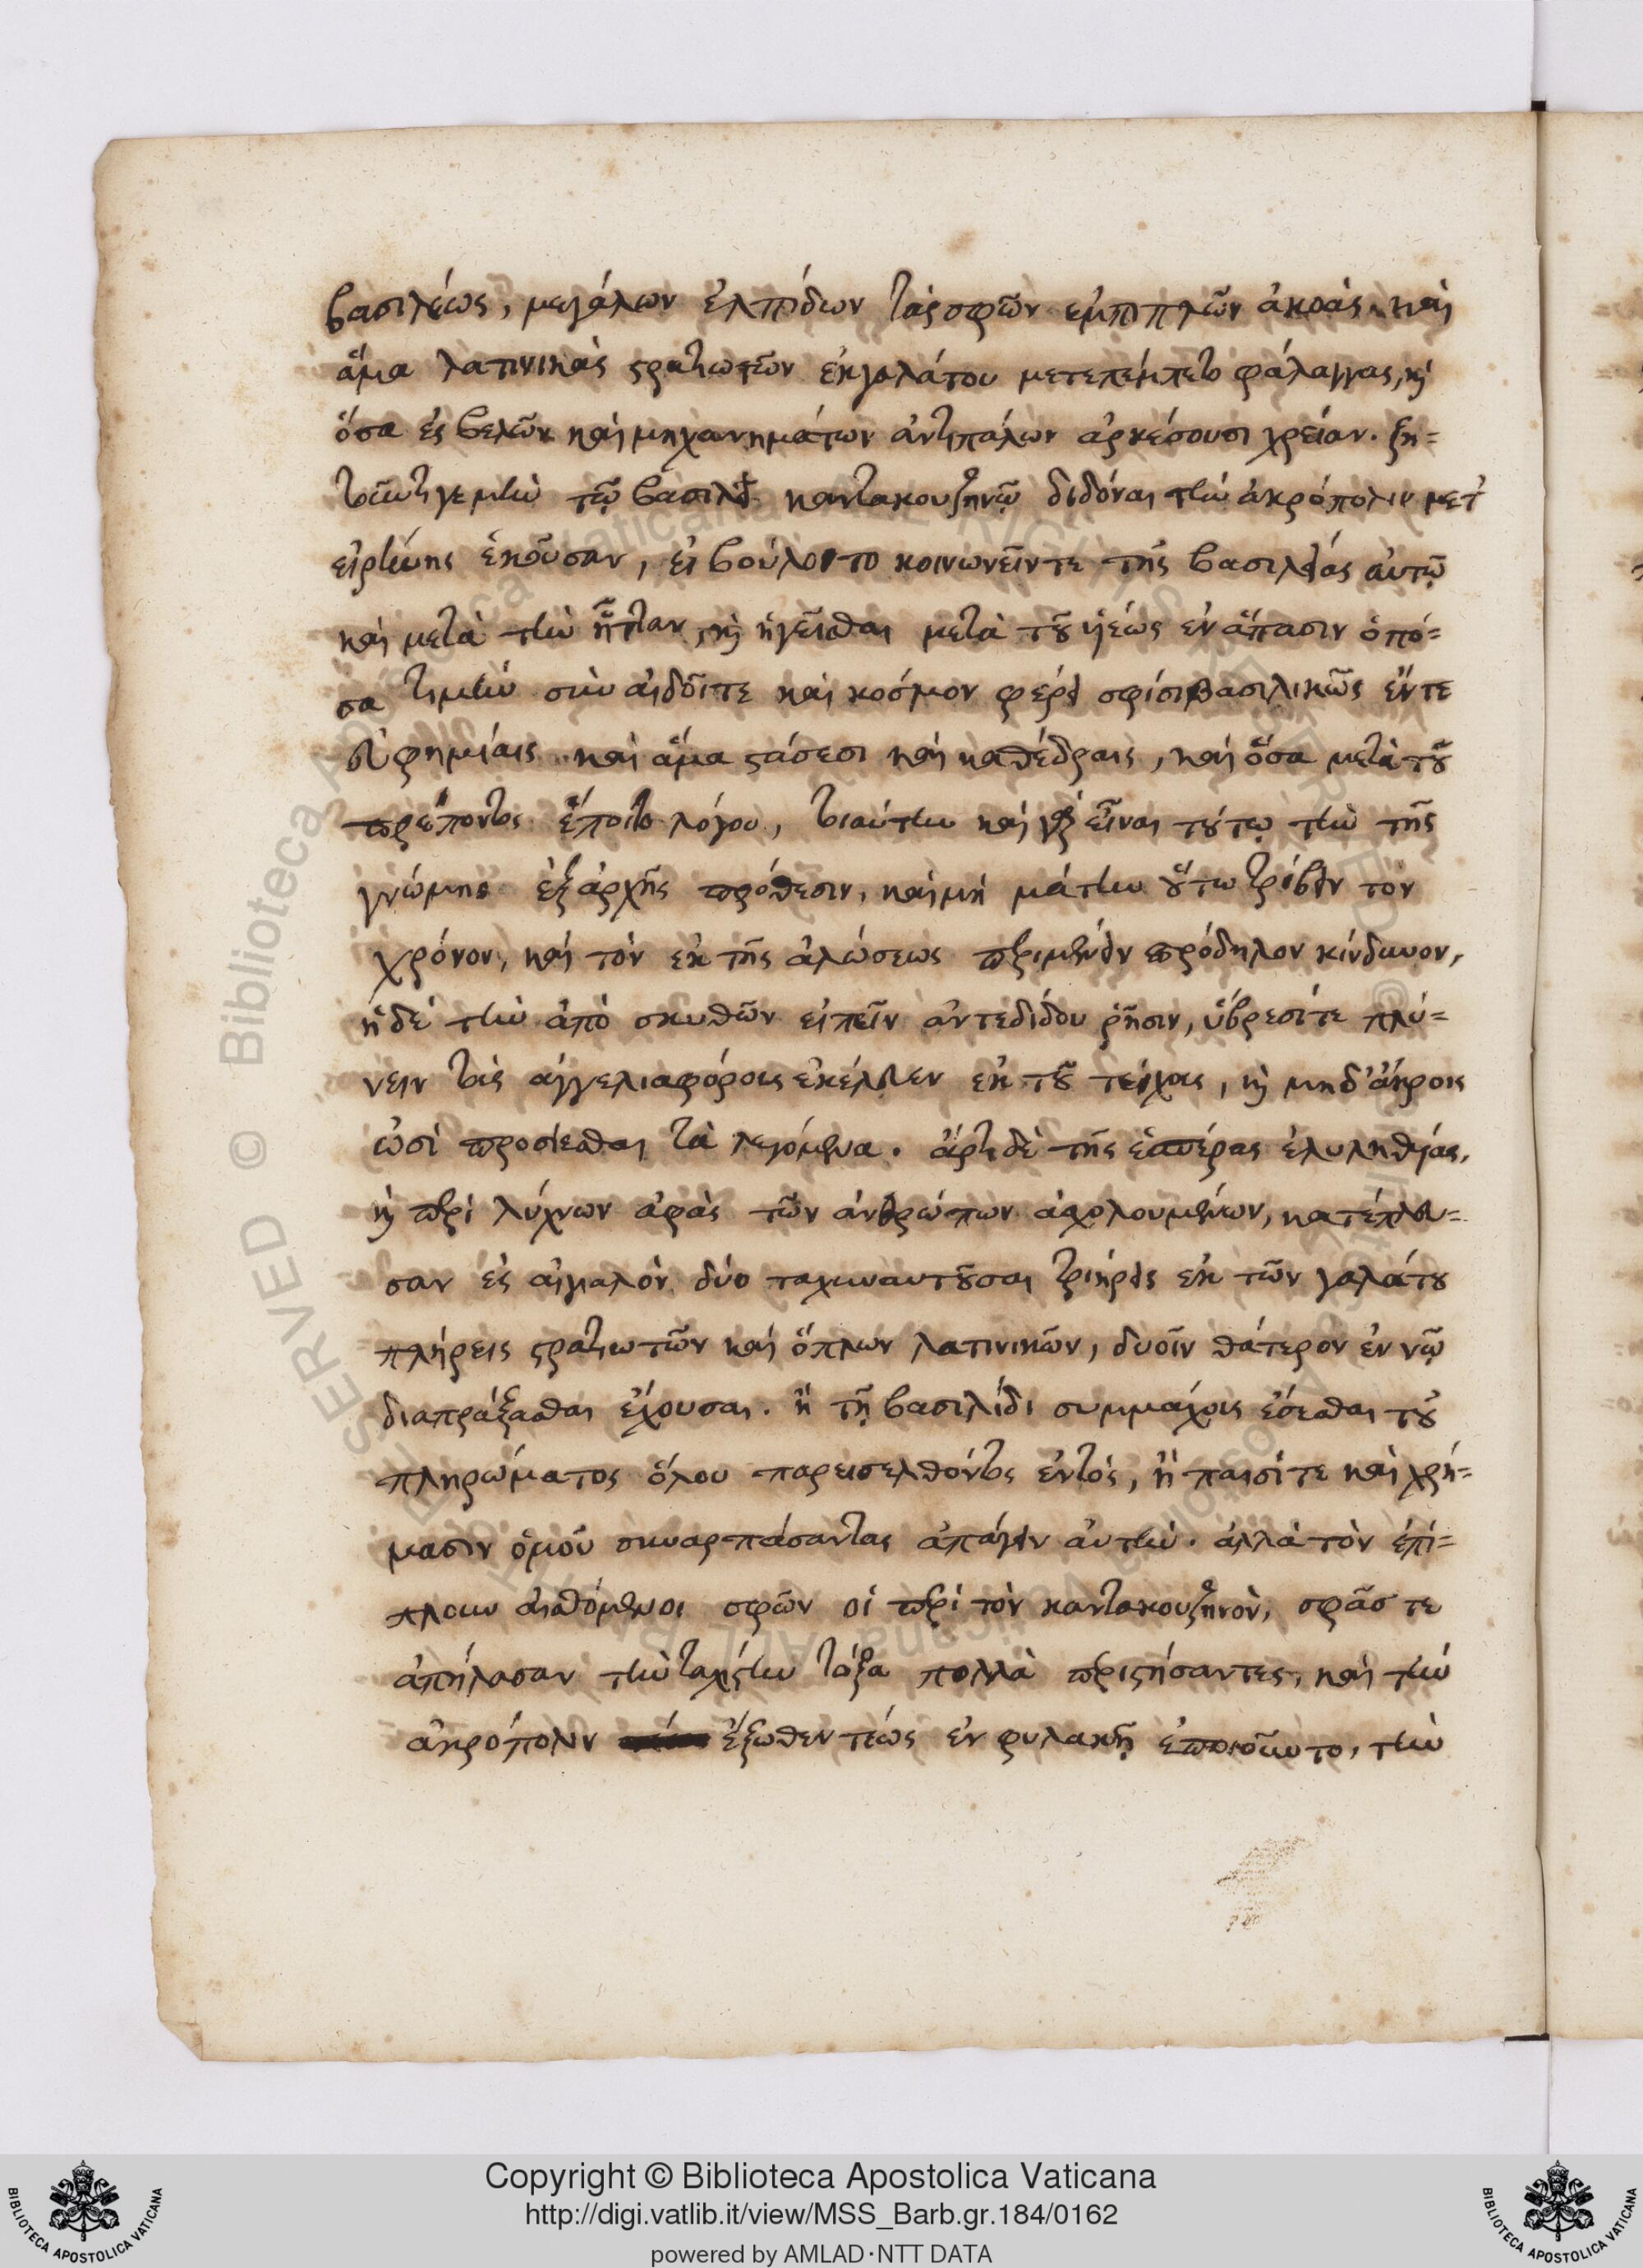 βασιλέως, μεγάλων ἐλπίδων τὰς σφῶν ἐμπιπλῶν ἀκοάς. καὶ
ἅμα λατινικὰς στρατιωτῶν ἐκ γαλάτου μετεπέμπετο φάλαγγας, καὶ
ὅσα ἐς βελῶν καὶ μηχανημάτων ἀντιπάλων ἀρκέσουσι χρείαν. ζη-
τοῦντι γε μὴν τῷ βασιλεῖ καντακουζηνῷ διδόναι τὴν ἀκρόπολιν μετ'
εἰρήνης ἑκοῦσαν, εἰ βούλοιτο κοινωνεῖν τε τῆς βασιλείας αὐτῷ
καὶ μετὰ τὴν ἧτταν, καὶ ἡγεῖσθαι μετὰ τοῦ υἱέως ἐν ἅπασιν ὁπό-
σα τιμὴν σὺν αἰδοῖ τε καὶ κόσμον φέρει σφίσι βασιλικῶς ἔν τε
εὐφημίαις καὶ ἅμα στάσεσι καὶ καθέδραις, καὶ ὅσα μετὰ τοῦ
πρέποντος ἕποιτο λόγου, τοιαύτην καὶ γὰρ εἶναι τούτῳ τὴν τῆς
γνώμης ἐξ ἀρχῆς πρόθεσιν, καὶ μὴ μάτην οὕτω τρίβειν τὸν
χρόνον, καὶ τὸν ἐκ τῆς ἁλώσεως περιμένειν πρόδηλον κίνδυνον,
ἡ δὲ τὴν ἀπὸ σκυθῶν εἰπεῖν ἀντεδίδου ῥῆσιν, ὕβρεσί τε πλύ-
νειν τοὺς ἀγγελιαφόρους ἐκέλευεν ἐκ τοῦ τείχους, καὶ μηδ' ἄκροις
ὠσὶ προσίεσθαι τὰ λεγόμενα. ἄρτι δὲ τῆς ἑσπέρας ἐληλυθυίας,
καὶ περὶ λύχνων ἁφὰς τῶν ἀνθρώπων ἀσχολουμένων, κατέπλευ-
σαν ἐς αἰγιαλὸν δύο ταχυναυτοῦσαι τριήρεις ἐκ τῶν γαλάτου
πλήρεις στρατιωτῶν καὶ ὅπλων λατινικῶν, δυοῖν θάτερον ἐν νῷ
διαπράξασθαι ἔχουσαι. ἢ τῇ βασιλίδι συμμάχους ἔσεσθαι τοῦ
πληρώματος ὅλου παρεισελθόντος ἐντός, ἢ παισί τε καὶ χρή-
μασιν ὁμοῦ συναρπάσαντας ἀπάγειν αὐτήν. ἀλλὰ τὸν ἐπί-
πλουν αἰσθόμενοι σφῶν οἱ περὶ τὸν καντακουζηνὸν, σφᾶς τε
ἀπήλασαν τὴν ταχίστην τόξα πολλὰ περιστήσαντες, καὶ τὴν
ἀκρόπολιν ἔξωθεν τέως ἐν φυλακῇ ἐποιοῦντο, τὴν
Copyright © Biblioteca Apostolica Vaticana
http://digi.vatlib.it/view/MSS_Barb.gr.184/0162
powered by AMLAD·NTT DATA